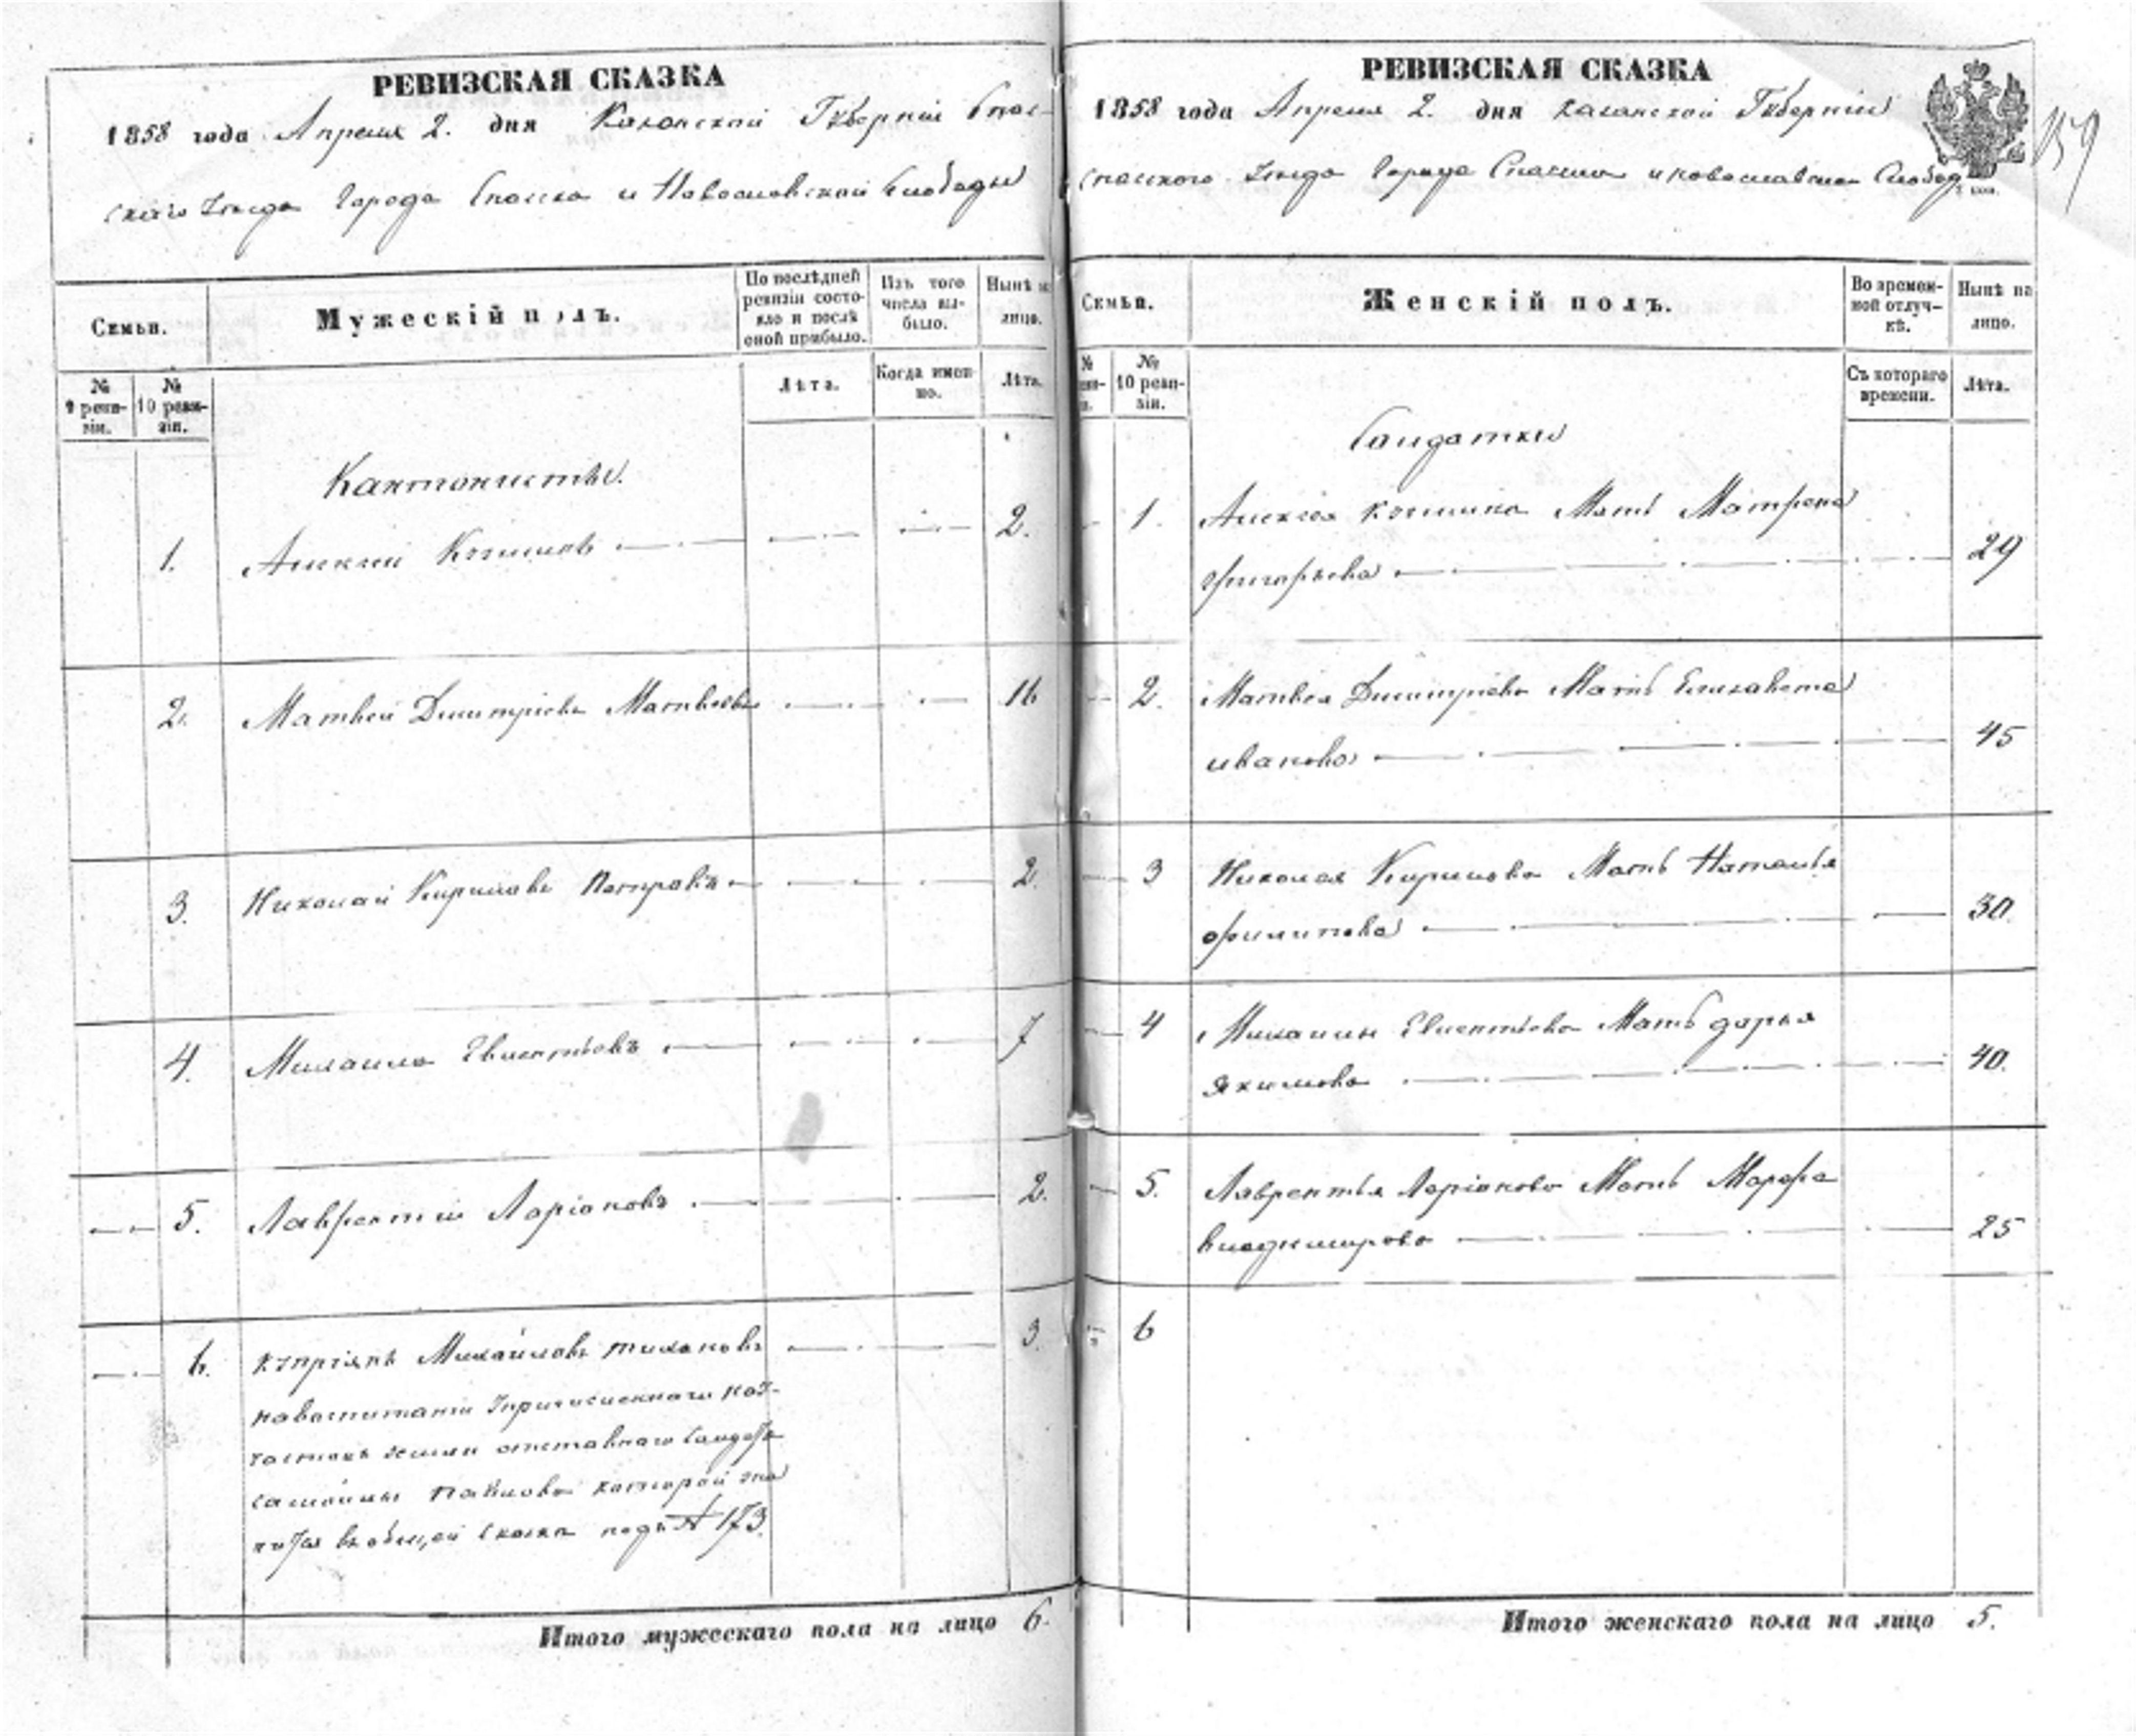 РЕВИЗСКАЯ СКАЗКА
1858 года Апреля 2. дня Казанской Губернии Спас-
скаго Уезда Города Спасска и Слободы
Семьи.
Мужескій полъ.
По послѣдней ревизіи состояло и послѣ оной прибыло.
Изъ того числа выбыло.
Нынѣ на лицо.
№ 9 ревизіи.
№ 10 ревизіи.
Лѣта.
Когда именно.
Лѣта.
Кантонисты.
1. Алексѣй 2.
2. Матвей Димитріевъ Матвеевъ 16
3. Николай Кириловъ Петровъ 2.
4. Михаила 7
5. Лаврентий Ларіоновъ 2.
6. Купріянъ Михайловъ Тихановъ 3.
навоспитаніи
жены отставнаго Салдата
которой
въ общей скаске подъ № 173.
Итого мужескаго пола на лицо 6.
РЕВИЗСКАЯ СКАЗКА
159
1858 года Апреля 2. дня Казанской Губернии
спасского Уезда Города Спасска и Слобод
Семьи.
Женскій полъ.
Во временной отлучкѣ.
Нынѣ на лицо.
№ 10 ревизіи.
Съ котораго времени.
Лѣта.
Салдатки
1. Алексея Мать Матрена
григорьева 29
2. Матвея Димитріева Мать Елизавета
иванова 45
3 Николая Кирилова Мать Наталья
филипова 30.
4 Михаилы Мать дарья
Якимова 40.
5. Лаврентья Ларіонова Мать Марфа
владимирова 25
6
Итого женскаго пола на лицо 5.